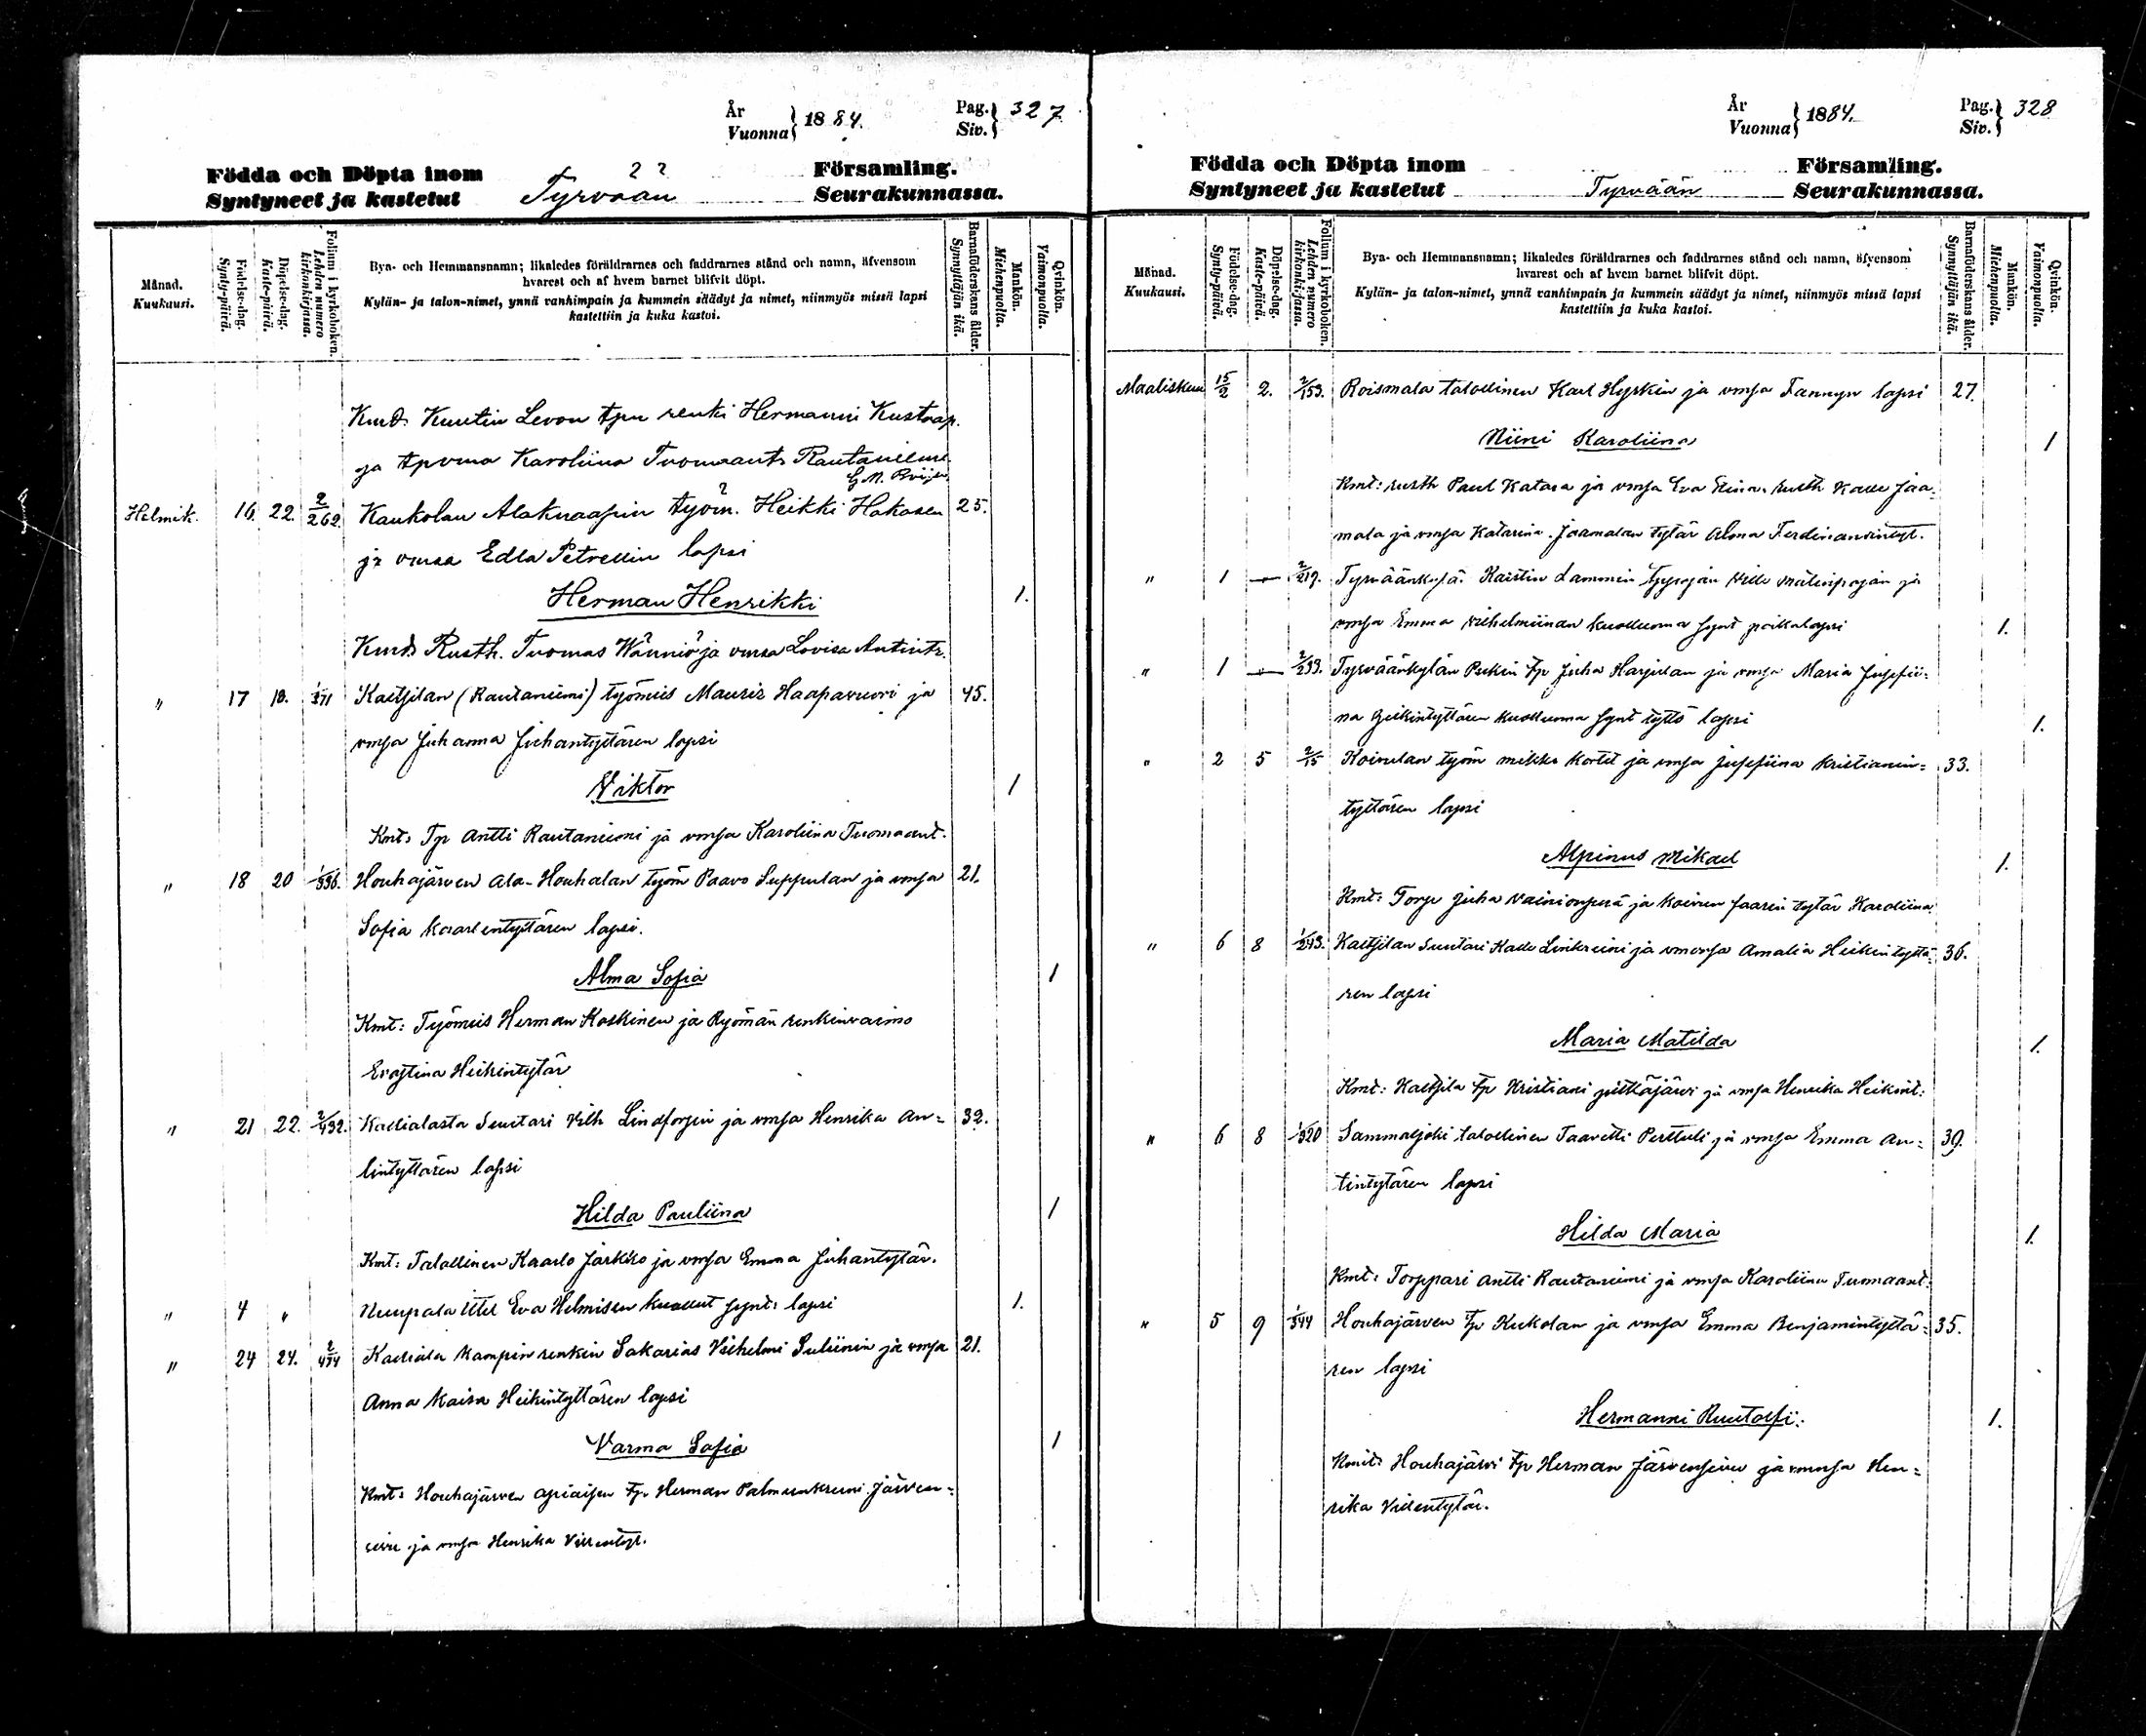 År
Vuonna } 1884.
Pag.
Siv. } 327
Födda och Döpta inom
Syntyneet ja kastetut Tyrvään Församling.
Seurakunnassa.
Månad.
Kuukausi.
Födelse-dag.
Synty-päivä.
Döpelse-dag.
Kaste-päivä.
Folium i kyrkoboken.
Lehden numero kirkonkirjassa.
Bya- och Hemmansnamn; likaledes föräldrarnes och faddrarnes stånd och namn, äfvensom
hvarest och af hvem barnet blifvit döpt.
Kylän- ja talon-nimet, ynnä vanhimpain ja kummein säädyt ja nimet, niinmyös missä lapsi
kastettiin ja kuka kastoi.
Barnaföderskans ålder.
Synnyttäjän ikä.
Mankön.
Miehenpuolta.
Qvinkön.
Vaimonpuolta.
Levon renki Hermanni
ja Karoliina Tuomaant. Rautaniemi
Helmik. 16. 22. 2/262. Kaukolan työm. Heikki Hakasen 25.
ja vmsa Edla Petrellin lapsi
Herman Henrikki 1.
Rusth. Tuomas Wänniö ja vmsa Lovisa
" 17 Kaltsilan (Rautaniemi) työmies Mauriz Haapavuori ja 45.
vmsa Juhanna Juhantyttären lapsi
Viktor 1
Kmt: Tp Antti Rautaniemi ja vmsa Karoliina Tuomaant.
" 18 20 Houhajärven Ala-Houhalan työm Paavo Seppulan ja vmsa 21.
Sofia Kaarlentyttären lapsi.
Alma Sofia 1
Kmt: Työmies Herman Koskinen ja Ryömän renkinvaimo
Evastina Heikintytär
" 21 22. 2/432. Kallialasta Suutari Vilh Lindforsin ja vmsa Henrika An= 32.
tintyttären lapsi
Hilda Pauliina 1
Kmt: Talollinen Kaarlo Jaakko ja vmsa Emma Juhantytär.
" 4 " Nuupala Ittel Eva Helmisen kuollut synt: lapsi 1.
" 24 24. 2/474 Kalliala Kampin renkin Sakarias Vilhelmi Suliinin ja vmsa 21.
Anna Maisa Heikintyttären lapsi
Varma Sofia 1
Kmt: Houhajärven tp. Herman Järven=
ja vmsa Henrika
År
Vuonna } 1884.
Pag.
Siv. } 328
Födda och Döpta inom
Syntyneet ja kastetut Tyrvään Församling.
Seurakunnassa.
Månad.
Kuukausi.
Födelse-dag.
Synty-päivä.
Döpelse-dag.
Kaste-päivä.
Folium i kyrkoboken.
Lehden numero kirkonkirjassa.
Bya- och Hemmansnamn; likaledes föräldrarnes och faddrarnes stånd och namn, äfvensom
hvarest och af hvem barnet blifvit döpt.
Kylän- ja talon-nimet, ynnä vanhimpain ja kummein säädyt ja nimet, niinmyös missä lapsi
kastettiin ja kuka kastoi.
Barnaföderskans ålder.
Synnyttäjän ikä.
Mankön.
Miehenpuolta.
Qvinkön.
Vaimonpuolta.
Maaliskuu 15/2 2. 2/153. Roismala talollinen Karl Hyrkin ja vmsa Fannyn lapsi 27.
Niini Karoliina 1
Kmt: rusth Paul Katara ja vmsa Eva Stina. rusth Kalle Jaa=
mala ja vmsa Katarina. Jaamalan tytär Alma
" 1 — 2/219. Tyrväänkylä Kaistin Lammin Ville ja
vmsa Emma Vilhelmiinan kuolluena synt poikalapsi 1.
" 1 — 2/233. Tyrväänkylän Pukin tp Juha Harjulan ja vmsa Maria Josefii=
na kuolluena synt tyttö lapsi 1.
" 2 5 2/15 Koivulan työm Mikko Kortet ja vmsa Josefiina Kristianin= 33.
tyttären lapsi
Alpinus Mikael 1.
Kmt: Torp Juha Vainionperä ja Koivun tytär Karoliina
" 6 8 1/243. Kaltsilan Suutari Kalle ja vmsa Amalia Heikintyttä= 36.
ren lapsi
Maria Matilda 1.
Kmt: Kaltsila tp Kristiani ja vmsa Henrika Heikint:
" 6 8 1/520 Sammaljoki talollinen Taavetti Perttuli ja vmsa Emma An= 39.
tintytären lapsi
Hilda Maria 1.
Kmt: Torppari Antti Rautaniemi ja vmsa Karoliina Tuomaant.
" 5 9 1/344 Houhajärven tp Kukolan ja vmsa Emma Benjamintyttä= 35.
ren lapsi
Hermanni Ruutolfi. 1.
Kmit: Houhajärvi tp Herman Järvensivu ja vmsa Hen=
rika Villentytär.